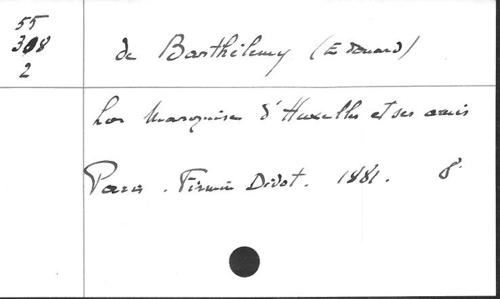 55
308
2
de Barthélemy (Edouard)
La Marquise d'Huxelles et ses amis
Paris. Firmin Didot. 1881. 8°